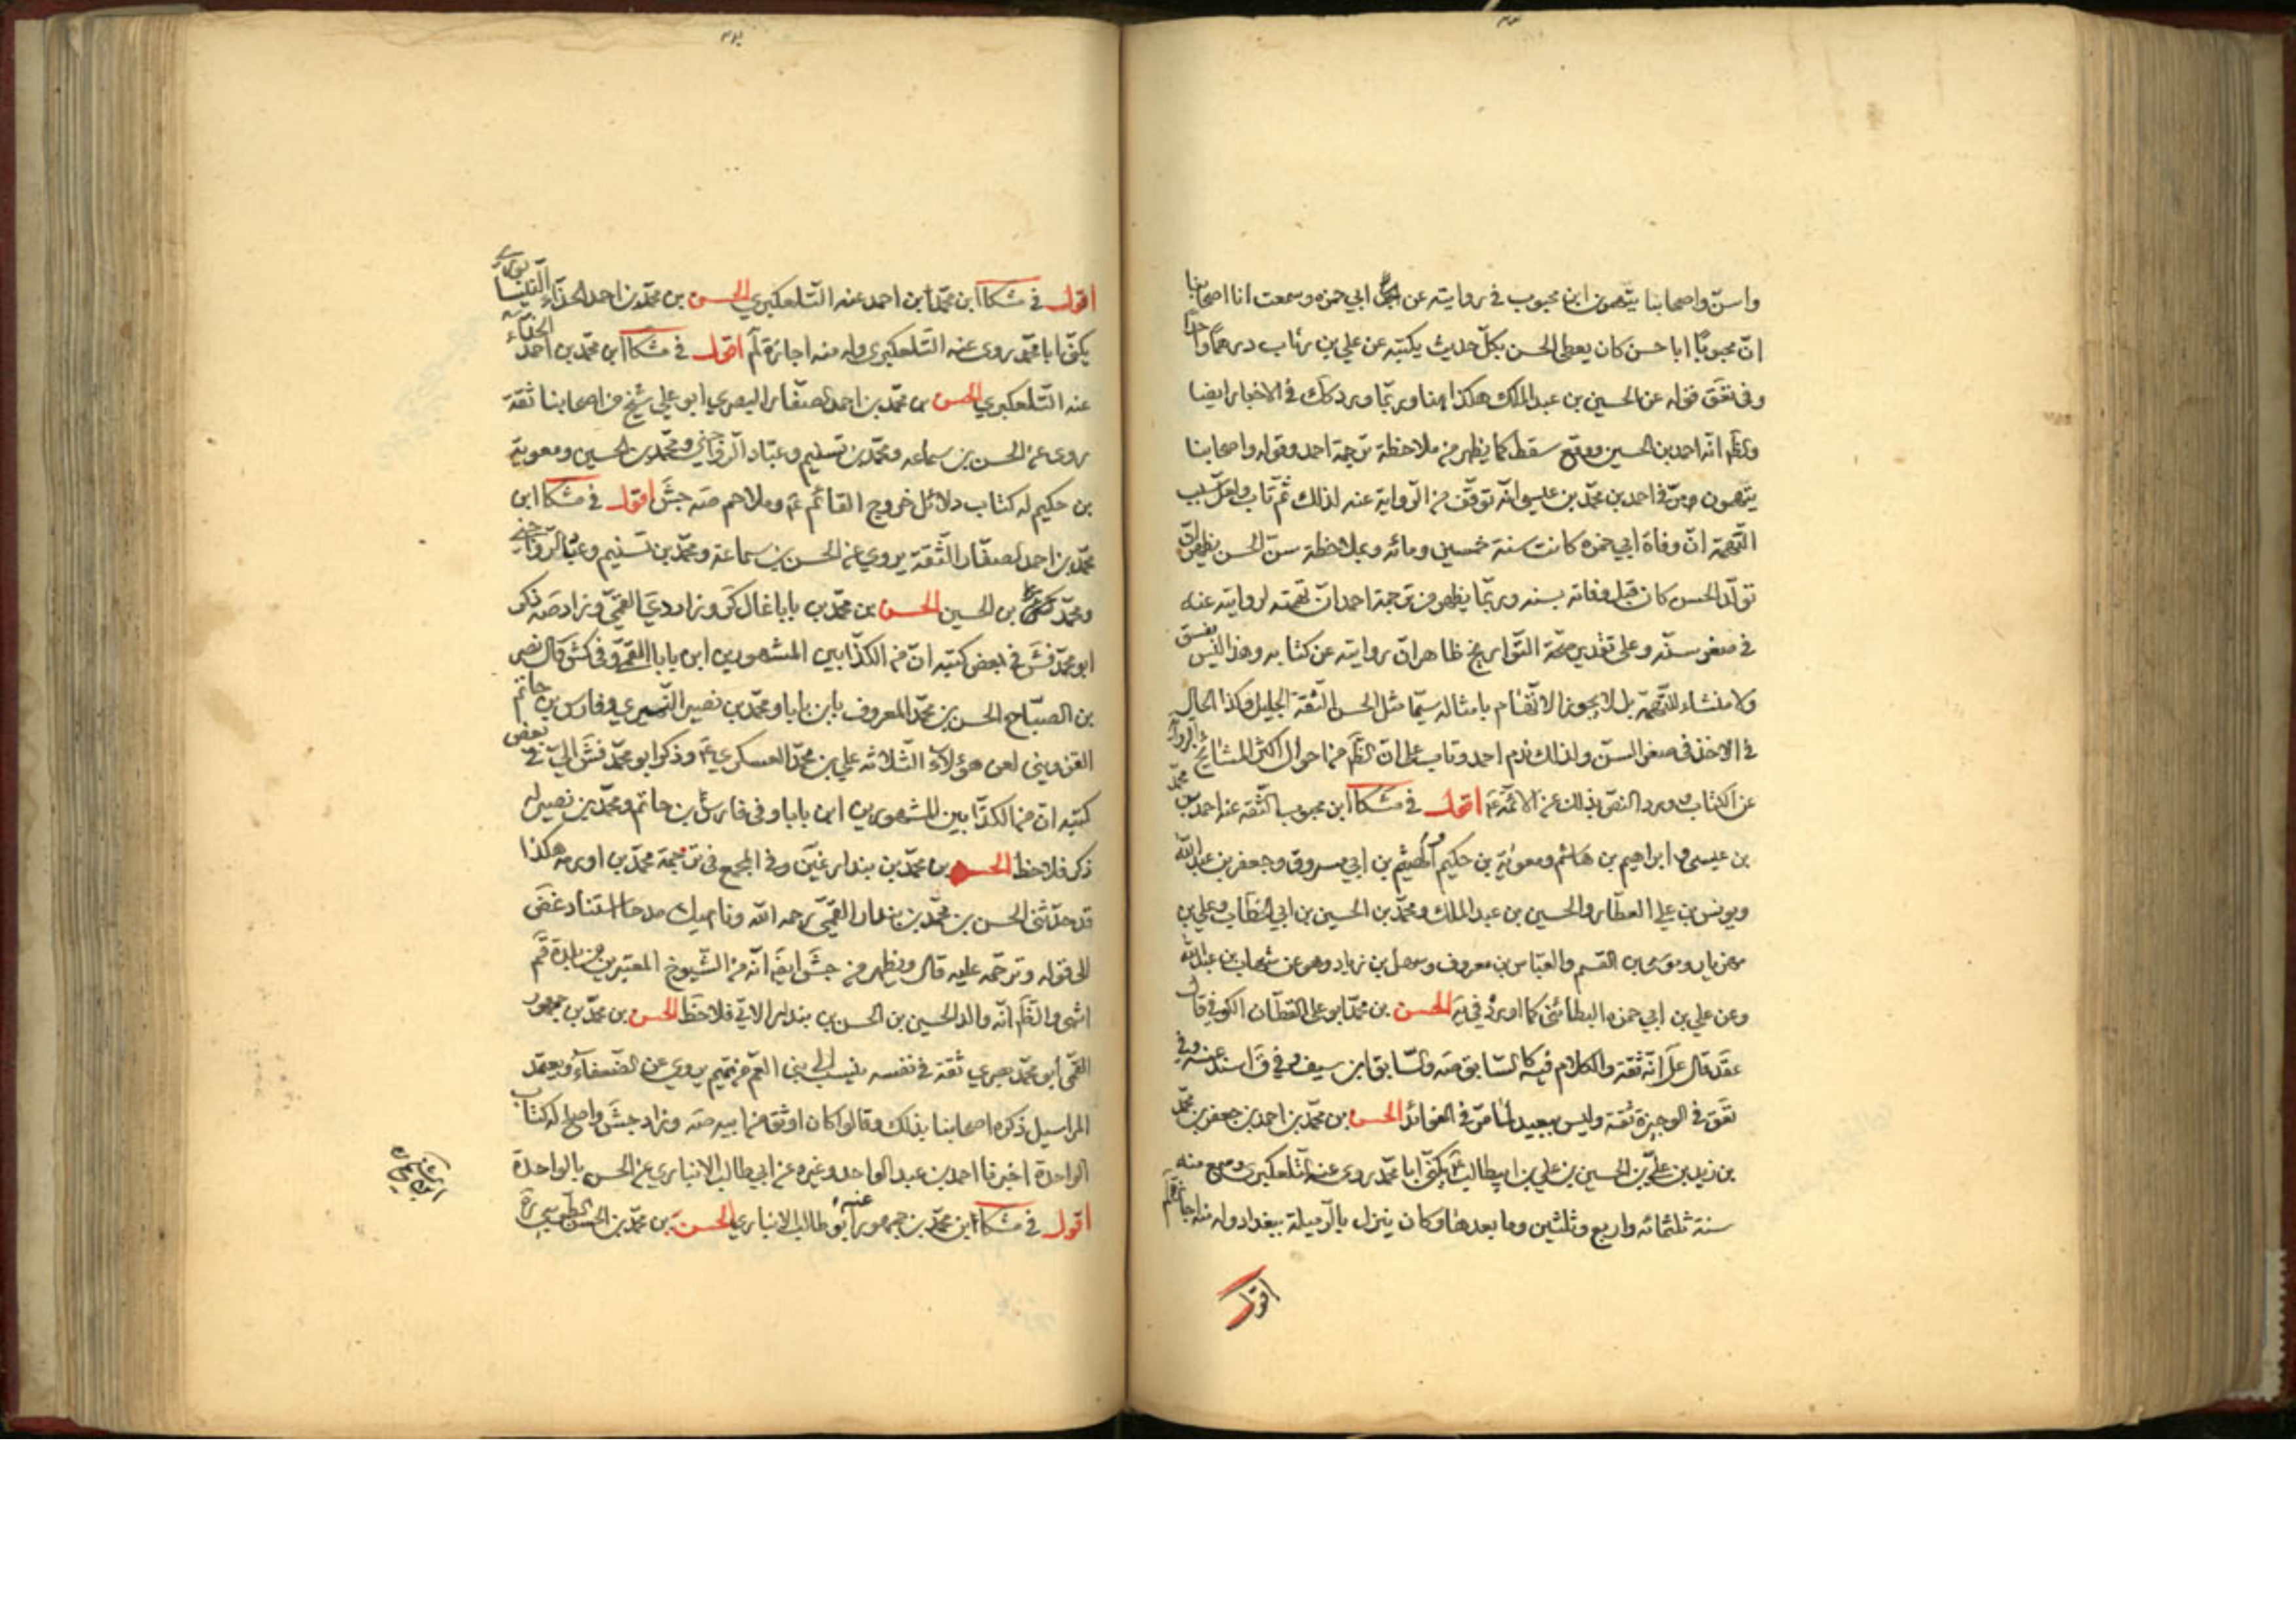 واسنّ واصحابنا يتّهمون ابن محبوب في روايته عن ابي حمزه وسمعت انا اصحابنا
انّ محبوبًا ابا حسن كان يعطي الحسن بكلّ حديث يكتبه عن علي بن رئاب درهمًا واحدًا
وفي تعق قوله عن الحسين بن عبد الملك هكذا هنا وربّما ورد كك في الاخبار ايضا
والظّ انّه احمد بن الحسين ووقع سقط كما يظهر من ملاحظة ترجمة احمد وقوله واصحابنا
يتّهمون ومرّ في احمد بن محمّد بن عيسى انّه توقّف من الرّواية عنه لذلك ثم تاب ولعلّ سبب
التّهمة انّ وفاة ابي حمزه كانت سنة خمسين ومائه وبملاحظة سنّ الحسن يظهر انّ
تولّد الحسن كان قبل وفاته بسنه وربّما يظهر من ترجمة احمد انّ تهمته لروايته عنه
في صغر سنّه وعلى تقدير صحّة التّواريخ ظاهر انّ روايته عن كتابه وهذا ليس بفسق
ولا منشاء للتّهمة بل لا يجوز الاتّهام بامثاله سيّما مثل الحسن الثّقة الجليل وكذا الحال
في الاخذ في صغر السنّ ولذلك ندم احمد وتاب على انّ الظّ من احوال اكثر المشايخ الرواية
عن الكتاب وورد النصّ بذلك عن الائمّة ع اقول في مشكا ابن محبوب الثّقه عنه احمد بن محمّد
بن عيسى وابراهيم بن هاشم ومعوية بن حكيم والهيثم بن ابي مسروق وجعفر بن عبد الله
ويونس بن علي العطّار والحسين بن عبد الملك ومحمّد بن الحسين بن ابي الخطّاب وعلي بن
مهزيار وموسى بن القسم والعبّاس بن معروف وسهل بن زياد وهو عن شهاب بن عبد ربّه
وعن علي بن ابي حمزه البطائني كما اورده في يه الحسن بن محمّد ابو علي القطّان الكوفي ق ان
عقد قال علّ انّه ثقة والكلام فيه كالسّابق صه والسّابق ابن سيف وفي ق اسند عنه وفي
تعق في الوجيزة ثقة وليس ببعيد لما مرّ في الفوائد الحسن بن محمّد بن احمد بن جعفر بن محمّد
بن زيد بن علي بن الحسين بن علي بن ابيطالب ع يكنّى ابا محمّد روى عنه التّلعكبري وسمع منه
سنة ثلثمائه واربع وثلثين وما بعدها وكان ينزل بالرّميلة ببغداد وله منه اجازة لم
اقول
اقول في مشكا ابن محمّد ابن احمد عنه التّلعكبري الحسن بن محمّد بن احمد الحذّاء النّيسابوري
يكنّى ابا محمّد روى عنه التّلعكبري وله منه اجازة لم اقول في مشكا ابن محمّد بن احمد الحذّاء
عنه التّلعكبري الحسن بن محمّد بن احمد الصفّار البصري ابو علي شيخ من اصحابنا ثقة
روى عن الحسن بن سماعه ومحمّد بن تسنيم وعبّاد الرّواجني ومحمّد بن الحسين ومعوية
بن حكيم له كتاب دلائل خروج القائم ع وملاحم صه جش اقول في مشكا ابن
محمّد بن احمد الصفّار الثّقة يروي عن الحسن بن سماعة ومحمّد بن تسنيم وعبّاد الرّواجني
ومحمّد بن الحسين الحسن بن محمّد بن بابا غال كر وزاد دي القمّي وزاد صه ذكر
ابو محمّد فش في بعض كتبه انّ من الكذّابين المشهورين ابن بابا القمّي وفي كش قال نصر
بن الصبّاح الحسن بن محمّد المعروف بابن بابا ومحمّد بن نصير النّميري وفارس بن حاتم
القزويني لعن هؤلاء الثّلاثه علي بن محمّد العسكري ع وذكر ابو محمّد فش في بعض
كتبه انّ من الكذّابين المشهورين ابن بابا وفي فارس بن حاتم ومحمّد بن نصير له
ذكر فلاحظ الحسن بن محمّد بن بندار غين وفي المجمع في ترجمة محمّد بن اورمه هكذا
قد حدّثني الحسن بن محمّد بن بندار القمّي رحمه الله وناهيك مدحا استناد غض
الى قوله وترحّمه عليه قال ويظهر من جش ايضه انّه من الشّيوخ المعتبرين من بلدة قم
انتهى والظّ انّه والد الحسين بن الحسن بن بندار الاتي فلاحظ الحسن بن محمّد بن جمهور
القمّي ابو محمّد بصري ثقة في نفسه ينسب الى بني العم من تميم يروي عن الضّعفآء ويعتمد
المراسيل ذكره اصحابنا بذلك وقالوا كان اوثق من ابيه صه وزاد جش واصلح له كتاب
الواحدة اخبرنا احمد بن عبد الواحد وغيره عن ابي طالب الانباري عن الحسن بالواحدة
اقول في مشكا ابن محمّد بن جمهور عنه ابو طالب الانباري الحسن بن محمّد بن الحسن الطّوسي ره